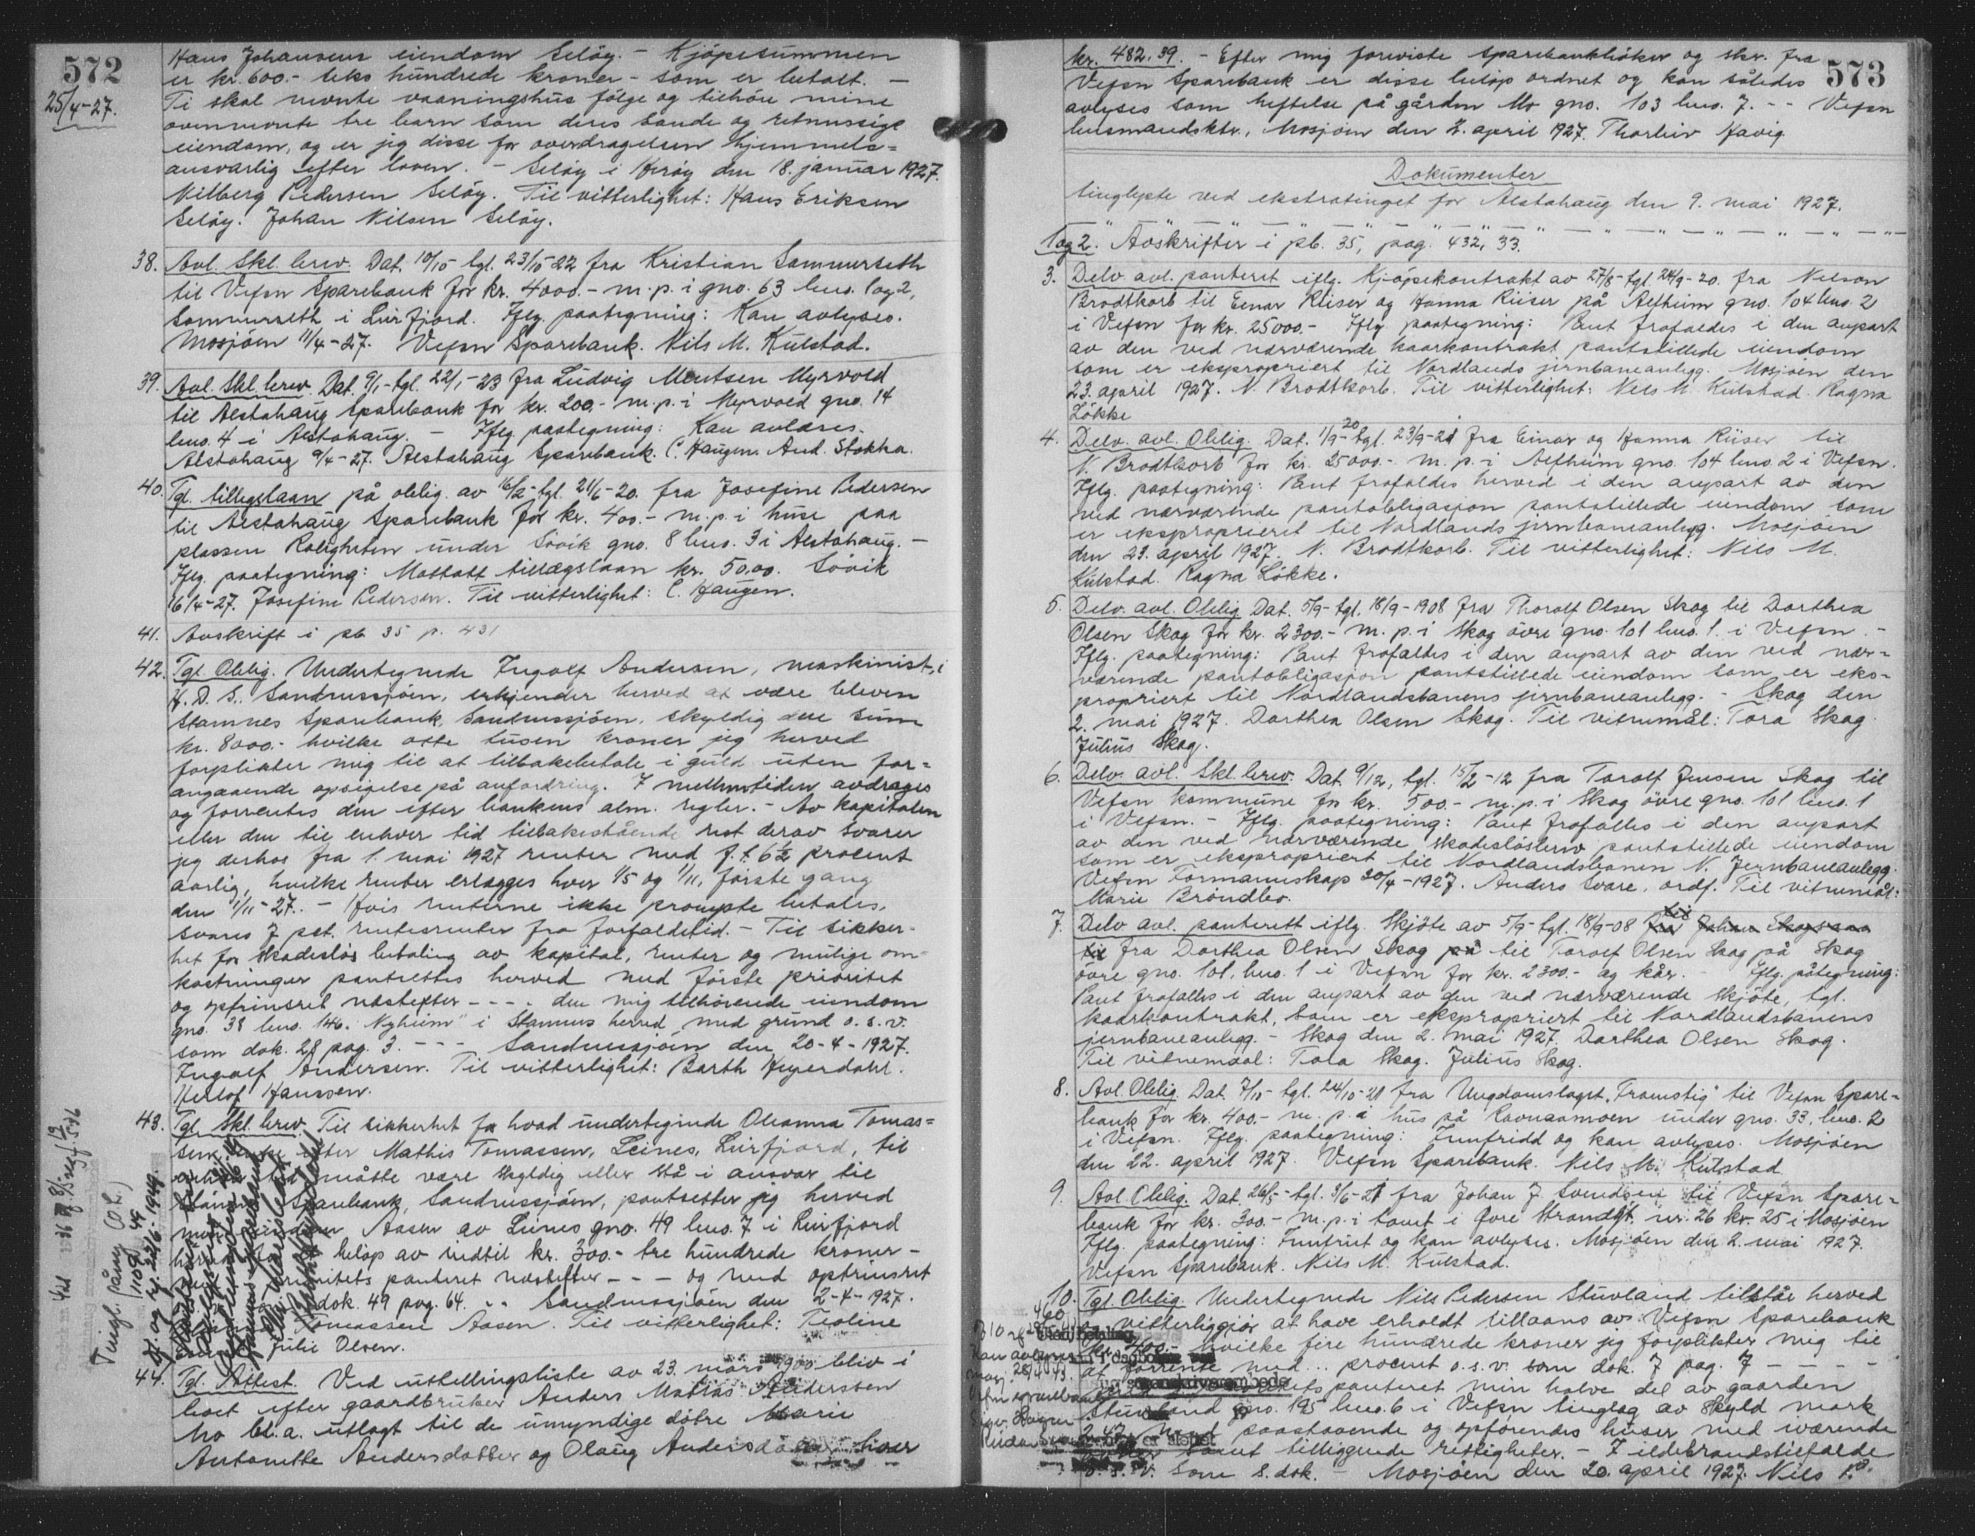 572
25/4-27.
Hans Johansens eiendom Seløy. - Kjøpesummen
er kr. 600.- seks hundrede kroner - som er betalt. -
Ti skal nevnte vaaningshus følge og tilhøre mine
ovennevnte tre barn som deres sande og retmessige
eiendom, og er jeg disse for overdragelsen hjemmels-
ansvarlig efter loven. - Seløy i Herøy den 18. januar 1927.
Vilberg Pedersen Seløy. Til vitterlighet: Hans Eriksen
Seløy. Johan Nilsen Seløy.
38. Avl. Skl. brev. Dat. 10/10 tgl. 23/10-22 fra Kristian Sommerseth
til Vefsn Sparebank for kr. 4000.- m.p.i gno. 63 bno. 1 og 2,
Sommerseth i Leirfjord. Iflg. paategning: Kan avlyses.
Mosjøen 11/4-27. Vefsn Sparebank. Nils M. Kulstad.
39. Avl. Skl. brev. Dat. 9/1-tgl. 22/1-23 fra Ludvig Mentsen Myrvold
til Alstahaug Sparebank for kr. 200.- m.p.i Myrvold gno. 14
bno. 4 i Alstahaug. - Iflg. paategning: Kan avlæses.
Alstahaug 9/4-27. Alstahaug Sparebank. C. Haugen. And. Stokka.
40. Tgl. tillegslaan på oblig. av 16/2-tgl. 21/6-20. fra Josefine Pedersen
til Alstahaug Sparebank for kr. 400.- m.p.i huse paa
plassen Roligheten under Søvik gno. 8 bno. 3 i Alstahaug. -
Iflg. paategning: Mottatt tillægslaan kr. 50,00. Søvik
16/4-27. Josefine Pedersen. Til vitterlighet: C. Haugen.
41. Avskrift i pb 35 p. 431
42. Tgl. Oblig. Undertegnede Ingolf Andersen, maskinist, i
H. D. S. Sandnessjøen, erkjender herved at være bleven
Stamnes Sparebank, Sandnessjøen, skyldig den sum
kr. 8000.- hvilke otte tusen kroner jeg herved
forplikter mig til at tilbakebetale i guld uten for-
angaaende opsigelse på anfordring. I mellemtiden avdrages
og forrentes den efter bankens alm. regler. - Av kapitalen
eller den til enhver tid tilbakestående rest derav svarer
jeg derhos fra 1. mai 1927 renter med f.t. 6 1/2 procent
aarlig, hvilke renter erlægges hver 1/5 og 1/11, første gang
den 1/11-27. - Hvis renterne ikke prompte betales,
svares 7 pct. rentesrenter fra forfaldstid. - Til sikker-
het for skadesløs betaling av kapital, renter og mulige om-
kostninger pantsettes herved med første prioritet
og opfrinsret næstefter - - - - den mig tilhørende eiendom
gno. 38 bno. 146. Nyheim" i Stamnes herred, med grund o. s. v.
som dok. 28 pag. 3. - - - Sandnessjøen den 20-4-1927.
Ingolf Andersen. Til vitterlighet: Barth Heyerdahl.
Herlof Hanssen.
43. Tgl. Skl. brev. Til sikkerhet for hvad undertegnede Oleanna Tomas-
sen, enke efter Mathis Tomassen, Leines, Leirfjord, til
enhver tid måtte være skyldig eller stå i ansvar til
Stamnes Sparebank, Sandnessjøen, pantsetter jeg herved
min eiendom Aasen av Leines gno. 49 bno. 7 i Leirfjord
beløp av indtil kr. 300.- tre hundrede kroner -
prioritets panteret næstefter - - - og med opfrinsret
dok. 49 pag. 64. - - Sandnessjøen den 2-4-1927.
Tomassen Aasen. Til vitterlighet: Teoline
Julie Olsen.
44. Tgl. Attest. Ved utskiftningsliste av 23. mars 1900 blev i
boet efter gaardbruker Anders Matias Andersen
Mo bl.a. utlagt til de umyndige døtre Marie
Antonette Andersdatter og Olaug Andersdatter, hver
Tingl. pång (O.L.)
1109/49
22/6-1949.
573
kr. 482,39. - Efter mig foreviste sparebankbøker og skr. fra
Vefsn Sparebank er disse beløp ordnet og kan således
avlyses som heftelse på gården Mo gno. 103 bno. 7. - - Vefsn
lensmandsktr., Mosjøen den 2. april 1927. Thorleiv Havig
Dokumenter
tinglyste ved ekstratinget for Alstahaug den 9. mai 1927.
1 og 2. Avskrifter i pb. 35, pag. 432, 33.
3. Delv. avl. panteret iflg. Kjøpekontrakt av 27/8-tgl. 24/9-20. fra Nilson
Brodtkorb til Einar Riiser og Hanna Riiser på Alfheim gno. 104 bno 2
i Vefsn for kr. 25000.- Iflg. paategning: Pant frafaldes i den anpart
av den ved nærværende kaarkontrakt pantstillede eiendom
som er ekspropriert til Nordlands jernbaneanlegg. Mosjøen den
23. april 1927. N. Brodtkorb. Til vitterlighet: Nils M. Kulstad. Ragna
Løkke
4. Delv. avl. Oblig. Dat. 1/9-20 tgl. 23/9-21 fra Einar og Hanna Riiser til
N. Brodtkorb for kr. 25000.- m.p.i Alfheim gno. 104 bno. 2 i Vefsn.
Iflg. paategning: Pant frafaldes herved i den anpart av den
ved nærværende pantobligasjon pantstillede eiendom som
er ekspropriert til Nordlands jernbaneanlegg. Mosjøen
den 23. april 1927. N. Brodtkorb. Til vitterlighet: Nils M.
Kulstad. Ragna Løkke.
5. Delv. avl. Oblig. Dat. 5/9-tgl. 18/9-1908 fra Thorolf Olsen Skog til Dorthea
Olsen Skog for kr. 2300.- m.p.i Skog øvre gno. 101 bno. 1. i Vefsn. -
Iflg. paategning: Pant frafaldes i den anpart av den ved nær-
værende pantobligasjon pantstillede eiendom som er eks-
propriert til Nordlandsbanens jernbaneanlegg. - Skog den
2. mai 1927. Dorthea Olsen Skog. Til vitnemål: Tora Skog.
Julius Skog.
6. Delv. avl. Skl. brev. Dat. 9/12, tgl. 15/2-12 fra Torolf Jensen Skog til
Vefsn kommune for kr. 500.- m.p.i Skog øvre gno. 101 bno. 1
i Vefsn. - Iflg. paategning: Pant frafalles i den anpart
av den ved nærværende skadesløsbrev pantstillede eiendom
som er ekspropriert til Nordlandsbanen N. Jernbaneanlegg.
Vefsn Formannskap 20/4-1927. Anders Svare, ordf. Til vitnemål:
Marie Brøndbo.
7. Delv avl. panterett iflg. Skjøte av 5/9-tgl. 18/9-08 fra Johan
fra Dorthea Olsen Skog på til Torolf Olsen Skog på Skog
øvre gno. 101, bno. 1 i Vefsn for kr. 2300.- og kår. - Iflg. påtegning:
Pant frafalles i den anpart av den ved nærværende skjøte, tgl.
kaarkontrakt, som er ekspropriert til Nordlandsbanens
jernbaneanlegg. - Skog den 2. mai 1927. Dorthea Olsen Skog.
Til vitnemaal: Tora Skog. Julius Skog.
8. Avl. Oblig. Dat. 7/10-tgl. 24/10-21 fra Ungdomslaget "Framstig" til Vefsn Spare-
bank for kr. 400.- m.p.i hus på Ravnaamoen under gno. 33, bno. 2
i Vefsn. Iflg. paategning: Innfridd og kan avlyses. Mosjøen
den 22. april 1927. Vefsn Sparebank. Nils M. Kulstad.
9. Avl. Oblig. Dat. 26/5-tgl. 3/6-21 fra Johan J. Svendsen til Vefsn Spare-
bank for kr. 300.- m.p.i tomt i Øvre Strandgt. nr. 26 kr. 25 i Mosjøen
Iflg. paategning: Innfriet og kan avlyses. Mosjøen den 2. mai 1927.
Vefsn Sparebank. Nils M. Kulstad.
10. Tgl. Oblig. Undertegnede Nils Pedersen Stuvland tilstår herved
og vitterliggjør at have erholdt tillaans av Vefsn Sparebank
kr. 400.- hvilke fire hundrede kroner jeg forplikter mig til
at forrente med .. procent o.s.v. som dok. 7 pag. 7 - - - -
prioritets panteret min halve del av gaarden
Stuvland gno. 195 bno. 6 i Vefsn tinglag av skyld mark
2.47 paastaaende og opførendes huser med iværende
samt tilliggende rettigheter. - I ildebrandstilfælde
o. s. v. som s. dok. - Mosjøen den 20. april 1927. Nils P.